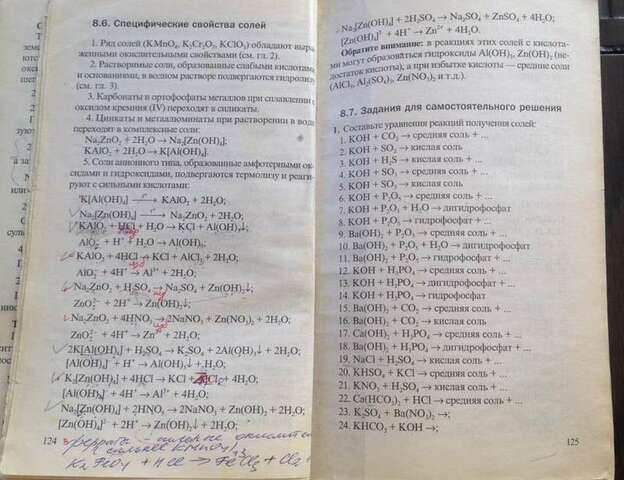 8.6. Специфические свойства солей
1. Ряд солей (KMnO₄, K₂Cr₂O₇, KClO₃) обладают выра-
женными окислительными свойствами (см. гл. 2).
2. Растворимые соли, образованные слабыми кислотами
и основаниями, в водном растворе подвергаются гидролизу
(см. гл. 3).
3. Карбонаты и ортофосфаты металлов при сплавлении с
оксидом кремния (IV) переходят в силикаты.
4. Цинкаты и метаалюминаты при растворении в воде
переходят в комплексные соли:
Na₂ZnO₂ + 2H₂O → Na₂[Zn(OH)₄];
KAlO₂ + 2H₂O → K[Al(OH)₄].
5. Соли анионного типа, образованные амфотерными ок-
сидами и гидроксидами, подвергаются термолизу и реаги-
руют с сильными кислотами:
K[Al(OH)₄] → KAlO₂ + 2H₂O;
Na₂[Zn(OH)₄] → Na₂ZnO₂ + 2H₂O;
KAlO₂ + HCl + H₂O → KCl + Al(OH)₃↓;
AlO₂⁻ + H⁺ + H₂O → Al(OH)₃;
KAlO₂ + 4HCl → KCl + AlCl₃ + 2H₂O;
AlO₂⁻ + 4H⁺ → Al³⁺ + 2H₂O;
Na₂ZnO₂ + H₂SO₄ → Na₂SO₄ + Zn(OH)₂↓;
ZnO₂²⁻ + 2H⁺ → Zn(OH)₂↓;
Na₂ZnO₂ + 4HNO₃ → 2NaNO₃ + Zn(NO₃)₂ + 2H₂O;
ZnO₂²⁻ + 4H⁺ → Zn²⁺ + 2H₂O;
2K[Al(OH)₄] + H₂SO₄ → K₂SO₄ + 2Al(OH)₃↓ + 2H₂O;
[Al(OH)₄]⁻ + H⁺ → Al(OH)₃↓ + H₂O;
+ 4HCl → KCl + + 4H₂O;
[Al(OH)₄]⁻ + 4H⁺ → Al³⁺ + 4H₂O;
Na₂[Zn(OH)₄] + 2HNO₃ → 2NaNO₃ + Zn(OH)₂ + 2H₂O;
[Zn(OH)₄]²⁻ + 2H⁺ → Zn(OH)₂↓ + 2H₂O;
124
ферраты –
сильнее KMnO₄
K₂FeO₄ + HCl → FeCl₃ + Cl₂ +
Na₂[Zn(OH)₄] + 2H₂SO₄ → Na₂SO₄ + ZnSO₄ + 4H₂O;
[Zn(OH)₄]²⁻ + 4H⁺ → Zn²⁺ + 4H₂O.
Обратите внимание: в реакциях этих солей с кислота-
ми могут образоваться гидроксиды Al(OH)₃, Zn(OH)₂ (не-
достаток кислоты), а при избытке кислоты — средние соли
(AlCl₃, Al₂(SO₄)₃, Zn(NO₃)₂ и т.д.).
8.7. Задания для самостоятельного решения
1. Составьте уравнения реакций получения солей:
1. KOH + CO₂ → средняя соль + ...
2. KOH + SO₂ → кислая соль
3. KOH + H₂S → кислая соль + ...
4. KOH + SO₃ → средняя соль + ...
5. KOH + SO₃ → кислая соль
6. KOH + P₂O₅ → средняя соль + ...
7. KOH + P₂O₅ + H₂O → дигидрофосфат
8. KOH + P₂O₅ → гидрофосфат + ...
9. Ba(OH)₂ + P₂O₅ → средняя соль + ...
10. Ba(OH)₂ + P₂O₅ + H₂O → дигидрофосфат
11. Ba(OH)₂ + P₂O₅ → гидрофосфат + ...
12. KOH + H₃PO₄ → средняя соль + ...
13. KOH + H₃PO₄ → дигидрофосфат + ...
14. KOH + H₃PO₄ → гидрофосфат
15. Ba(OH)₂ + CO₂ → средняя соль + ...
16. Ba(OH)₂ + CO₂ → кислая соль
17. Ca(OH)₂ + H₃PO₄ → гидрофосфат + ...
18. Ba(OH)₂ + H₃PO₄ → дигидрофосфат + ...
19. NaCl + H₂SO₄ → кислая соль + ...
20. KHSO₄ + KCl → средняя соль + ...
21. KNO₃ + H₂SO₄ → кислая соль + ...
22. Ca(HCO₃)₂ + HCl → средняя соль + ...
23. K₂SO₄ + Ba(NO₃)₂ →;
24. KHCO₃ + KOH →;
125